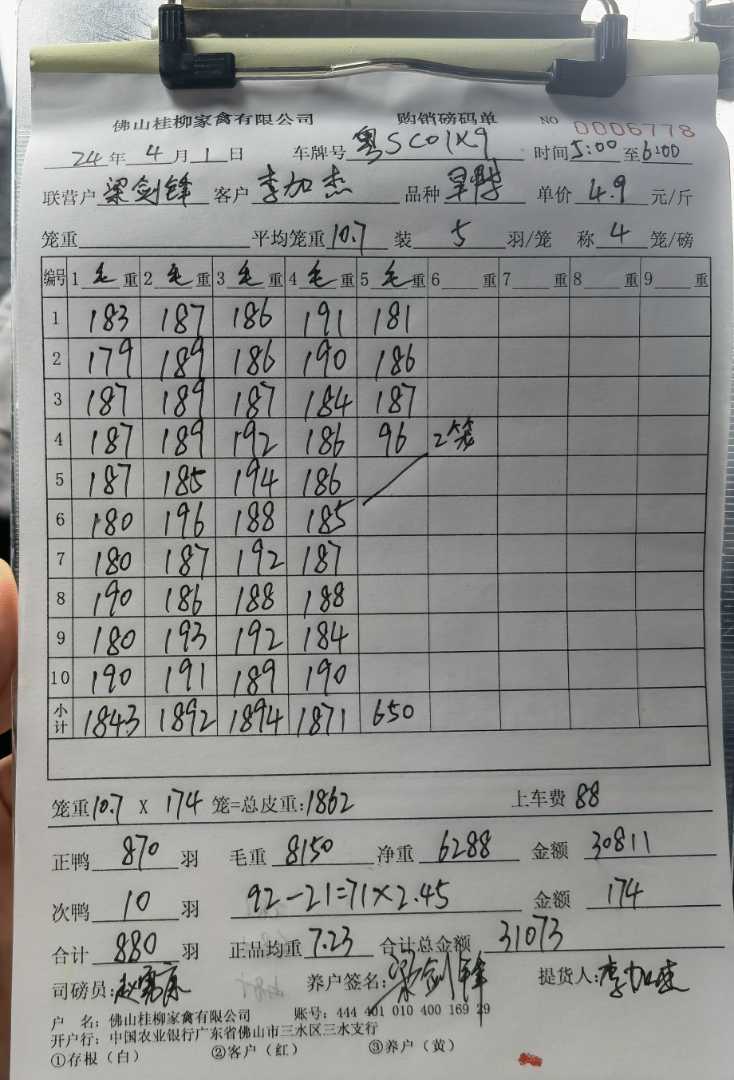 佛山桂柳家禽有限公司 购销磅码单 NO 0006778
24年4月1日 车牌号 粤SC01X9 时间5:00至6:00
联营户 梁剑锋 客户 李加杰 品种 单价 4.9 元/斤
笼重 平均笼重 10.7 装 5 羽/笼 称 4 笼/磅
编号 1 毛 重 2 毛 重 3 毛 重 4 毛 重 5 毛 重 6 重 7 重 8 重 9 重
1 183 187 186 191 181
2 179 189 186 190 186
3 187 189 187 184 187
4 187 189 192 186 96 2笼
5 187 185 194 186
6 180 196 188 185
7 180 187 192 187
8 190 186 188 188
9 180 193 192 184
10 190 191 189 190
小计 1843 1892 1894 1871 650
笼重 10.7 X 174 笼=总皮重:1862 上车费 88
正鸭 870 羽 毛重 8150 净重 6288 金额 30811
次鸭 10 羽 92-21=71×2.45 金额 174
合计 880 羽 正品均重 7.23 合计总金额 31073
司磅员: 养户签名: 梁剑锋 提货人: 李加杰
户 名: 佛山桂柳家禽有限公司 账号: 444 401 010 400 169 29
开户行: 中国农业银行广东省佛山市三水区三水支行
①存根（白） ②客户（红） ③养户（黄）